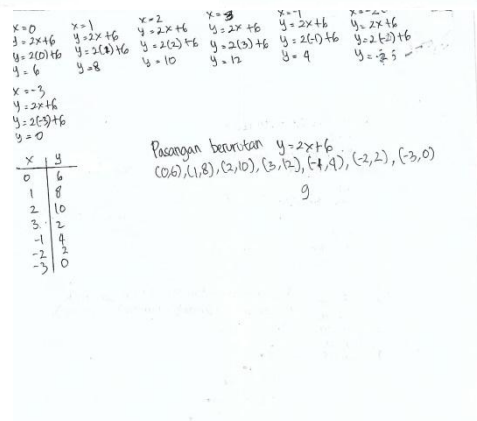 x=0
y=2x+6
y=2(0)+6
y=6
x=1
y=2x+6
y=2(1)+6
y=8
x=2
y=2x+6
y=2(2)+6
y=10
x=3
y=2x+6
y=2(3)+6
y=12
y=2x+6
y=2(-1)+6
y=4
y=2x+6
y=2(-2)+6
x=-3
y=2x+6
y=2(-3)+6
y=0
x y
0 6
1 8
2 10
3 2
-1 4
-2 2
-3 0
Pasangan berurutan y=2x+6
(0,6), (1,8), (2,10), (3,12), (-1,4), (-2,2), (-3,0)
9